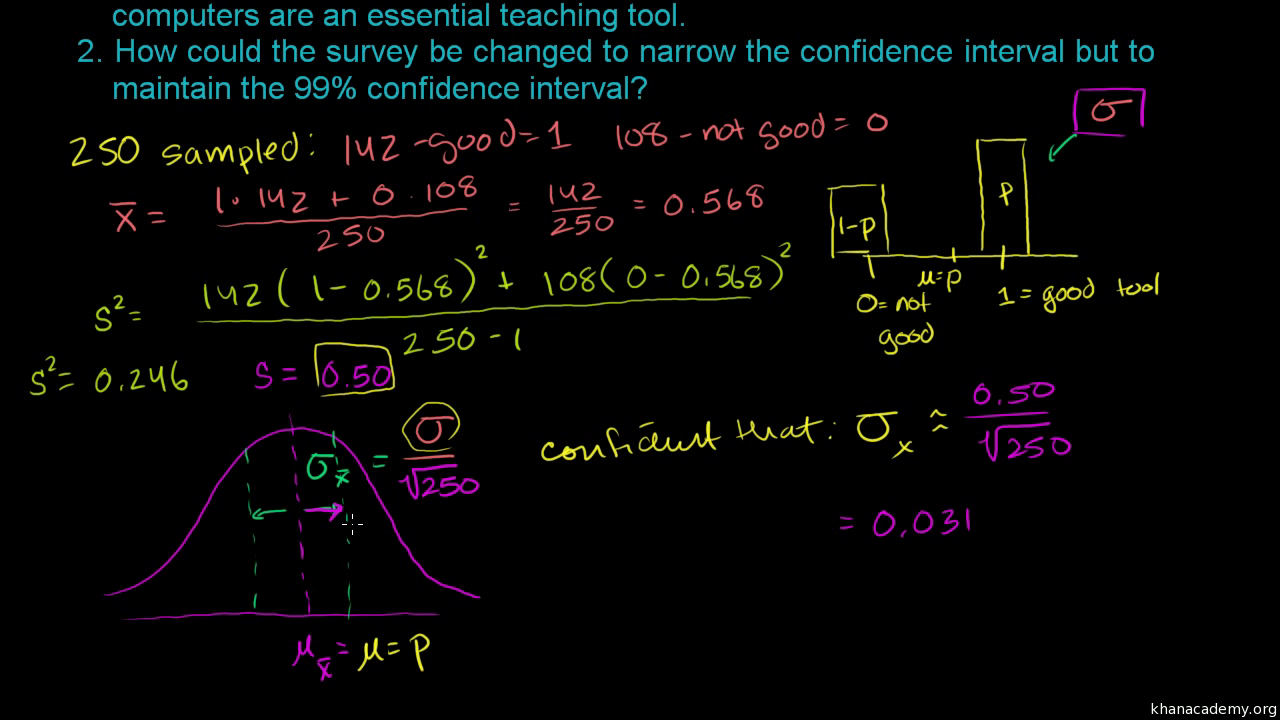 computers are an essential teaching tool.
2. How could the survey be changed to narrow the confidence interval but to
maintain the 99% confidence interval?
σ
250 sampled: 142 - good = 1 108 - not good = 0
x̄ = (1·142 + 0·108)/250 = 142/250 = 0.568
1-p p
μ=p
0 = not good 1 = good tool
S² = (142(1 - 0.568)² + 108(0 - 0.568)²)/(250 - 1)
S² = 0.246 S = 0.50
σx̄ = σ/√250
confident that: σx ≈ 0.50/√250
= 0.031
μx̄ = μ = p
khanacademy.org